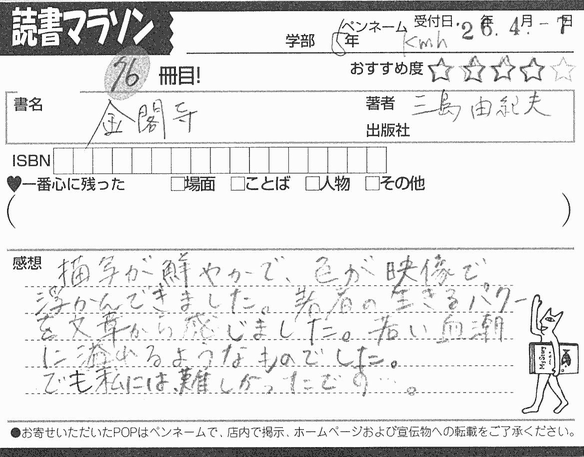 読書マラソン
学部 5年 ペンネーム kmh 受付日 '26年4月-7日
76 冊目!
おすすめ度 ☆☆☆☆☆
書名 金閣寺
著者 三島由紀夫
出版社
ISBN
♥一番心に残った □場面 □ことば □人物 □その他
( )
感想 描写が鮮やかで、色が映像で
浮かんできました。若者の生きるパワー
を文章から感じました。若い血潮
に溢れるようなものでした。
でも私には難しかったデの…。
●お寄せいただいたPOPはペンネームで、店内で掲示、ホームページおよび宣伝物への転載をご了承ください。